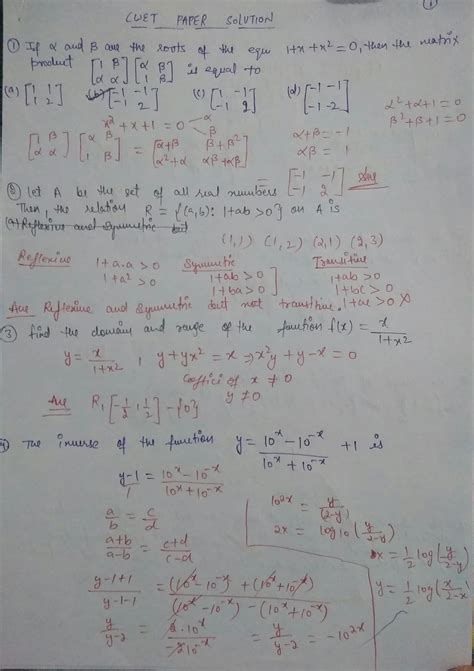 ①
CUET PAPER SOLUTION
① If α and β are the roots of the equn 1+x+x² = 0, then the matrix
product [1 β; α α] [α β; 1 β] is equal to
(a) [1 1; 1 2] (b) [-1 -1; -1 2] (c) [1 -1; -1 2] (d) [-1 -1; -1 -2]
x² + x + 1 = 0 α β
α²+α+1 = 0
β²+β+1 = 0
α+β = -1
αβ = 1
[1 β; α α] [α β; 1 β] = [α+β β+β²; α²+α αβ+αβ]
[-1 -1; -1 2] Ans
Let A be the set of all real numbers
Then, the relation R = {(a,b): 1+ab >0} on A is
(a) Reflexive and Symmetric but
(1,1) (1,2) (2,1) (2,3)
Reflexive 1+a.a >0 Symmetric Transitive
1+a² >0 1+ab >0 1+ab >0
1+ba >0 1+bc >0
Ans Reflexive and Symmetric but not transitive. 1+ac >0 X
③ find the domain and range of the function f(x) = x/(1+x²)
y = x/(1+x²) , y + yx² = x ⇒ x²y + y - x = 0
of x ≠ 0
y ≠ 0
Ans R, [-1/2, 1/2] - {0}
④ The inverse of the function y = (10^x - 10^-x)/(10^x + 10^-x) + 1 is
(y-1)/1 = (10^x - 10^-x)/(10^x + 10^-x)
a/b = c/d
(a+b)/(a-b) = (c+d)/(c-d)
(y-1+1)/(y-1-1) = ((10^x - 10^-x) + (10^x + 10^-x))/((10^x - 10^-x) - (10^x + 10^-x))
y/(y-2) = 2·10^x/-2 10^-x = y/(y-2) = -10^2x
10^2x = y/(2-y)
2x = log10 (y/(2-y))
x = 1/2 log (y/(2-y))
y = 1/2 log (x/(2-x))